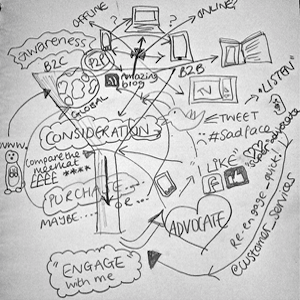 OFFLINE
?
?
ONLINE
awareness
B2C
P2P
B2B
GLOBAL
Amazing
blog
"LISTEN"
TWEET
#sadface
CONSIDERATION
www.
Compare the
meerkat
££££ ****
"I LIKE"
f
super-advocate
PURCHASE...
or...
MAYBE....
ADVOCATE
Re-engage
@customer_services
"ENGAGE"
with me